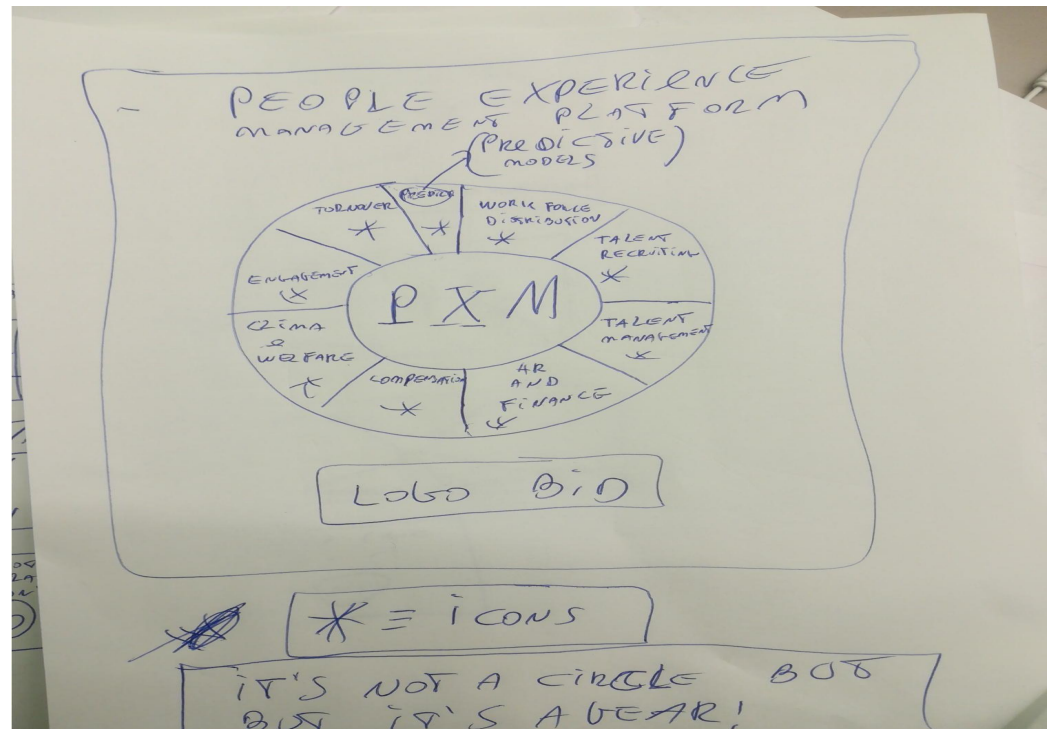 PEOPLE EXPERIENCE
MANAGEMENT PLATFORM
(PREDICTIVE)
MODELS
TURNOVER
WORK FORCE
DISTRIBUTION
TALENT
RECRUITING
TALENT
MANAGEMENT
HR
AND
FINANCE
COMPENSATION
CLIMA
&
WELFARE
ENGAGEMENT
PXM
LOGO BID
* = iCONS
iT'S NOT A CIRCLE BUT
BUT iT'S A GEAR!